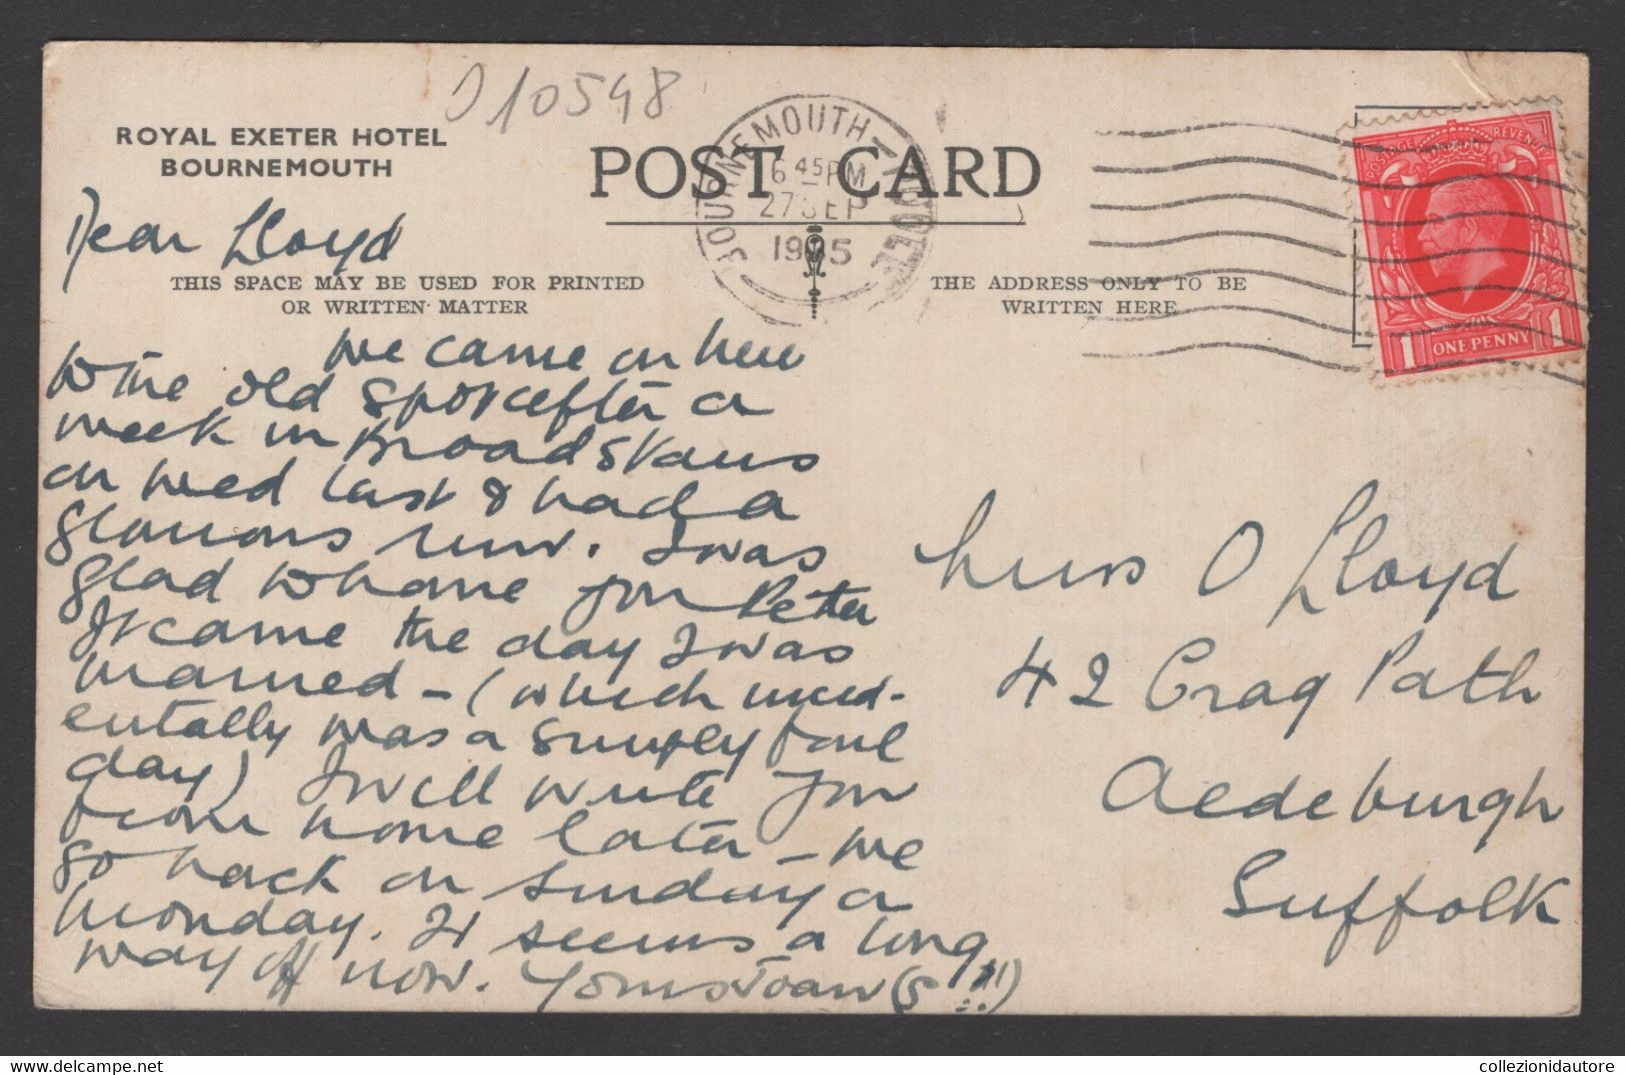 010548
ROYAL EXETER HOTEL
BOURNEMOUTH
POST CARD
BOURNEMOUTH - POOLE
6 45 PM
27 SEP
1935
POSTAGE REVENUE
1 ONE PENNY 1
Dear Lloyd
THIS SPACE MAY BE USED FOR PRINTED
OR WRITTEN MATTER
THE ADDRESS ONLY TO BE
WRITTEN HERE
We came on here
to the old spot after a
week in Broadstairs
on Wed last & had a
glorious run. I was
glad to have your letter
It came the day I was
married - (which incid-
entally was a simply foul
day) I will write you
from home later - We
go back on Sunday or
Monday. It seems a long
way off now. Yours Joan (S!!!)
Miss O Lloyd
42 Crag Path
Aldeburgh
Suffolk
collezionidautore